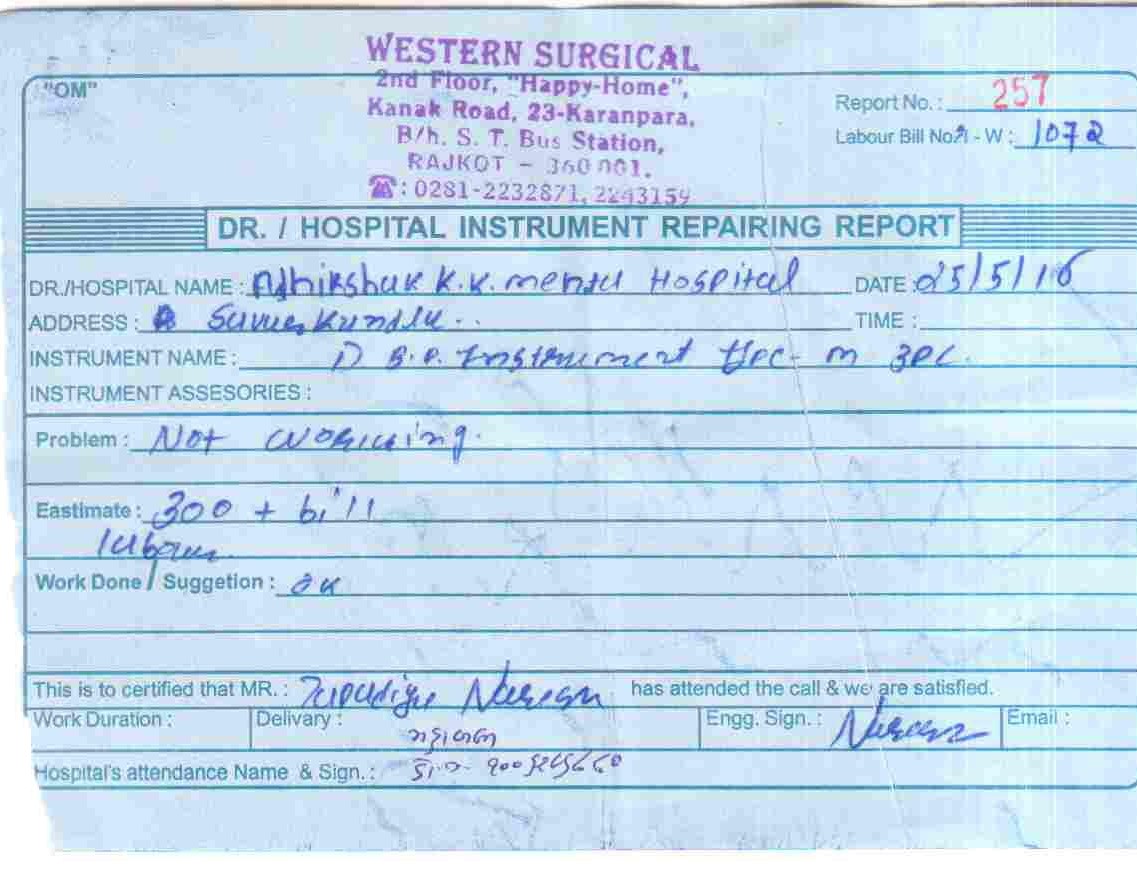 WESTERN SURGICAL
"OM"
2nd Floor, "Happy-Home",
Kanak Road, 23-Karanpara,
B/h. S. T. Bus Station,
RAJKOT - 360 001.
☎: 0281-2232871, 2243159
Report No. : 257
Labour Bill No. - W : 1072
DR. / HOSPITAL INSTRUMENT REPAIRING REPORT
DR./HOSPITAL NAME : Adhikshak K.K. mental Hospital DATE : 25/5/16
ADDRESS : TIME :
INSTRUMENT NAME : 1) B.P. Instrument
INSTRUMENT ASSESORIES :
Problem : Not working.
Eastimate : 300 + bill
Work Done / Suggetion : OK
This is to certified that MR. : Naresh has attended the call & we are satisfied.
Work Duration : Delivary : Engg. Sign. : Email :
Hospital's attendance Name & Sign. :